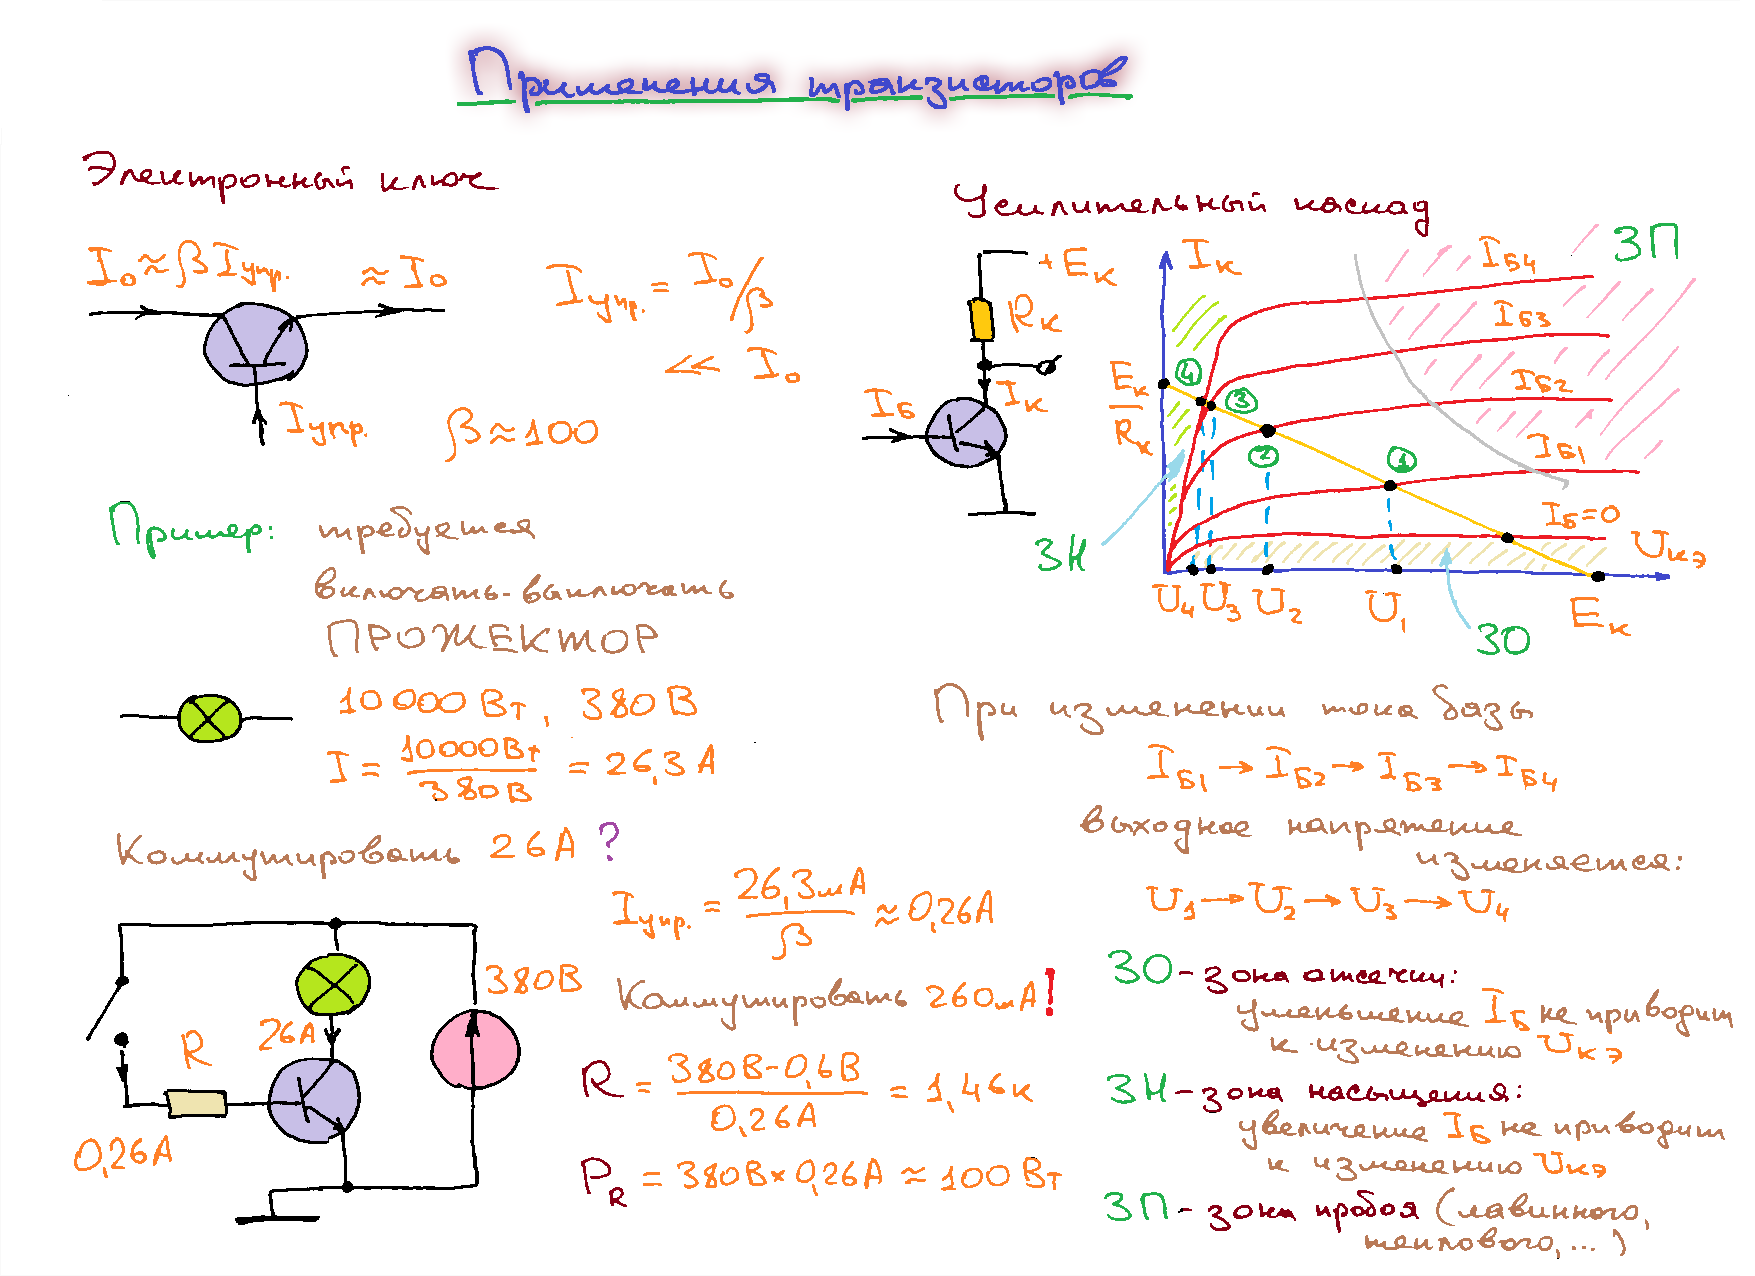 Применения транзисторов
Электронный ключ
I₀ ≈ β Iупр.
≈ I₀
Iупр.
β ≈ 100
Iупр. = I₀/β
<< I₀
Пример: требуется
включать-выключать
ПРОЖЕКТОР
10 000 Вт, 380 В
I = 10000Вт / 380В = 26,3 А
Коммутировать 26А ?
380В
26А
R
0,26А
Iупр. = 26,3мА / β ≈ 0,26А
Коммутировать 260мА!
R = 380В-0,6В / 0,26А = 1,46к
P_R = 380В×0,26А ≈ 100 Вт
Усилительный каскад
+Eк
Rк
Iк
IБ
Iк
Eк / Rк
IБ4
ЗП
IБ3
IБ2
IБ1
IБ=0
Uкэ
④
③
②
①
ЗН
U₄ U₃ U₂ U₁ Eк
ЗО
При изменении тока базы
IБ1 → IБ2 → IБ3 → IБ4
выходное напряжение
изменяется:
U₁ → U₂ → U₃ → U₄
ЗО - зона отсечки:
уменьшение IБ не приводит
к изменению Uкэ
ЗН - зона насыщения:
увеличение IБ не приводит
к изменению Uкэ
ЗП - зона пробоя (лавинного,
теплового, ...)